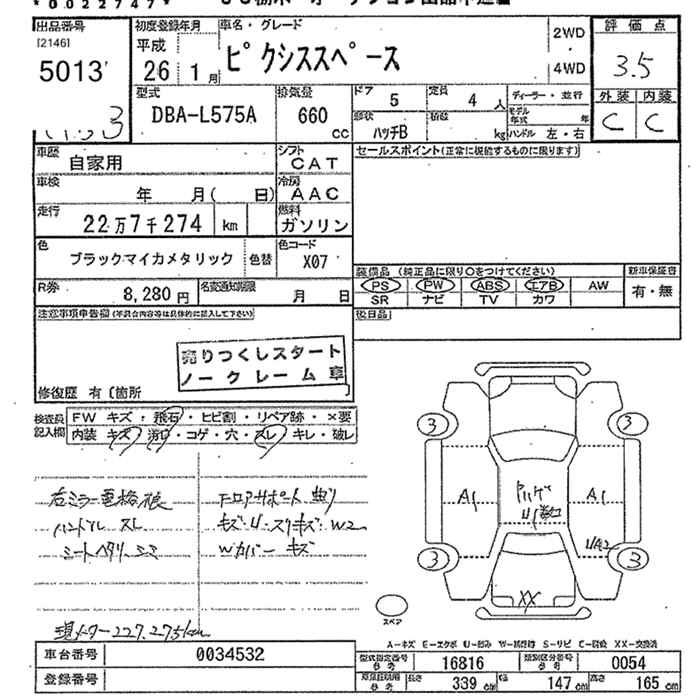 *0022747*
出品番号
[2146]
5013
初度登録年月
平成
26 1月
車名・グレード
ピクシススペース
2WD
4WD
評価点
3.5
外装 内装
C C
型式
DBA-L575A
排気量
660
cc
ドア
5
定員
4人
形状
ハッチB
積載
kg
ディーラー・並行
モデル年式 年
ハンドル 左・右
車歴
自家用
シフト
CAT
車検
年 月( 日)
冷房
AAC
走行
22万7千274 km
燃料
ガソリン
色
ブラックマイカメタリック
色替
色コード
X07
R券
8,280円
名変通知期限
月 日
セールスポイント(正常に機能するものに限ります)
装備品 (純正品に限り○をつけてください)
PS PW ABS エアB AW
SR ナビ TV カワ
新車保証書
有・無
後日品
注意事項申告欄(不具合内容等は具体的に記入して下さい)
売りつくしスタート
ノークレーム車
修復歴 有〔箇所 〕
検査員記入欄
FW キズ・飛石・ヒビ割・リペア跡・×要
内装 キズ・汚レ・コゲ・穴・スレ・キレ・破レ
ハンドル スレ
シートヘタリ シミ
フロアサポート 曲り
Wカバー キズ
現メーター227,275km
3 3
A1 A1
3 3
XX
スペア
A-キズ E-エクボ U-凹み W-補修跡 S-サビ C-腐食 XX-交換済
車台番号
0034532
登録番号
型式指定番号
参考
16816
類別区分番号
参考
0054
参考
長さ
339 cm
幅
147 cm
高さ
165 cm